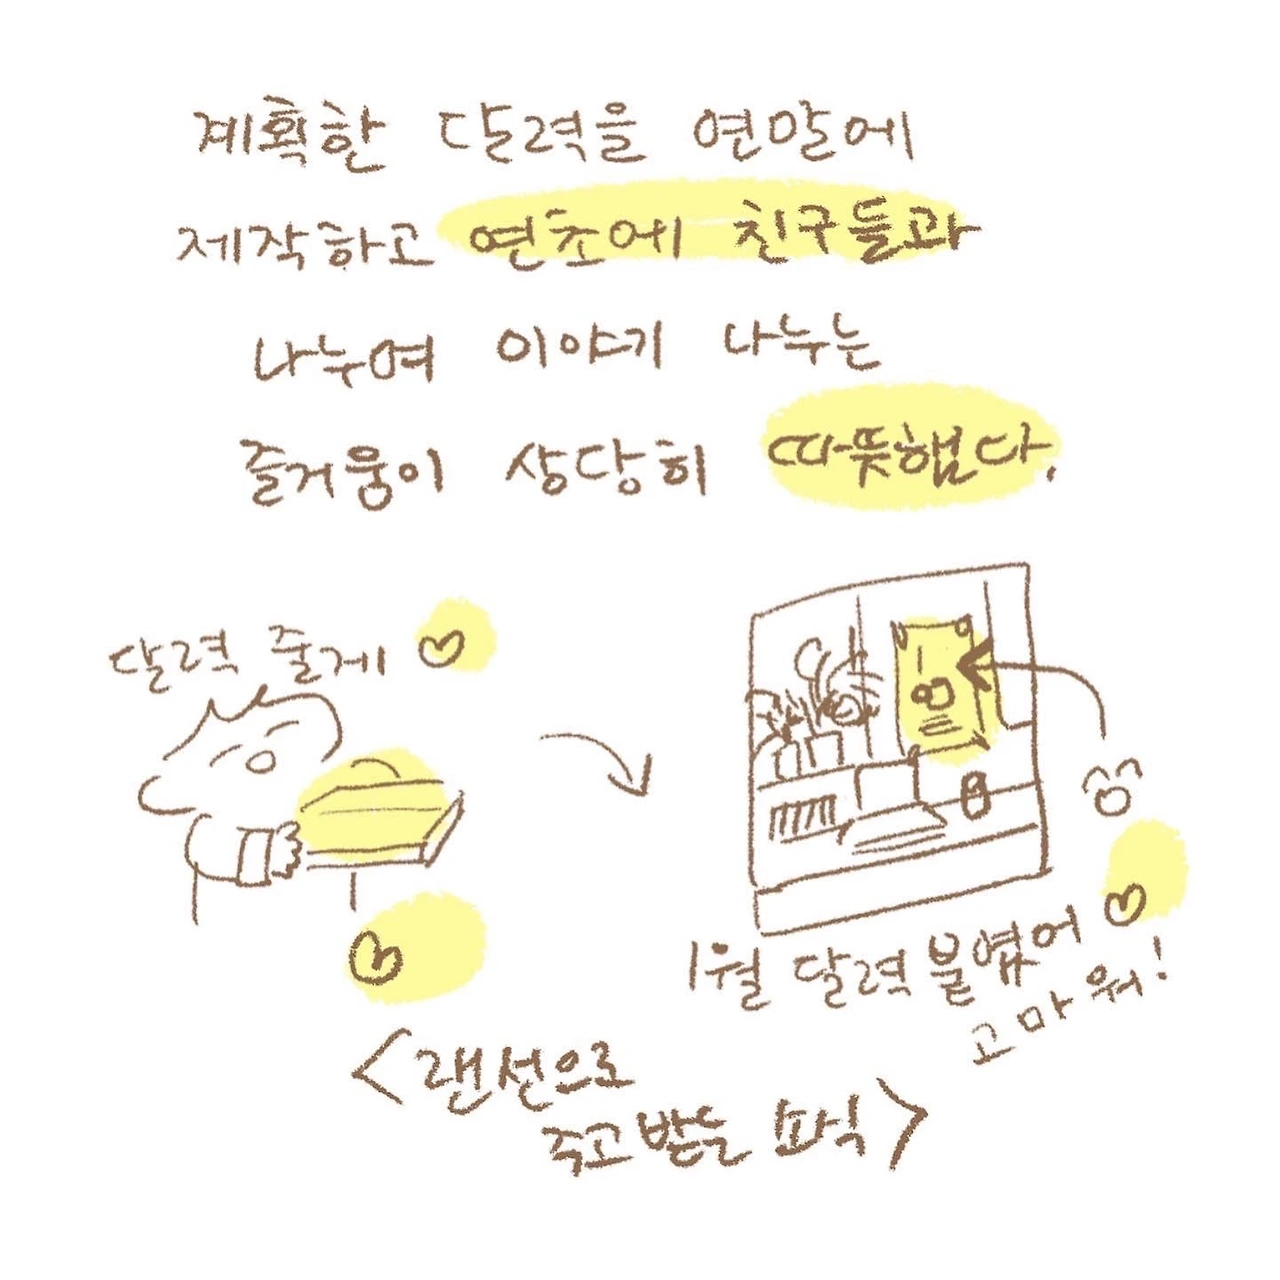 계획한 달력을 연말에
제작하고 연초에 친구들과
나누며 이야기 나누는
즐거움이 상당히 따뜻햅다.
달력 줄게
1월 달력 붙였어
고마워!
<랜선으로
주고받는 소식>